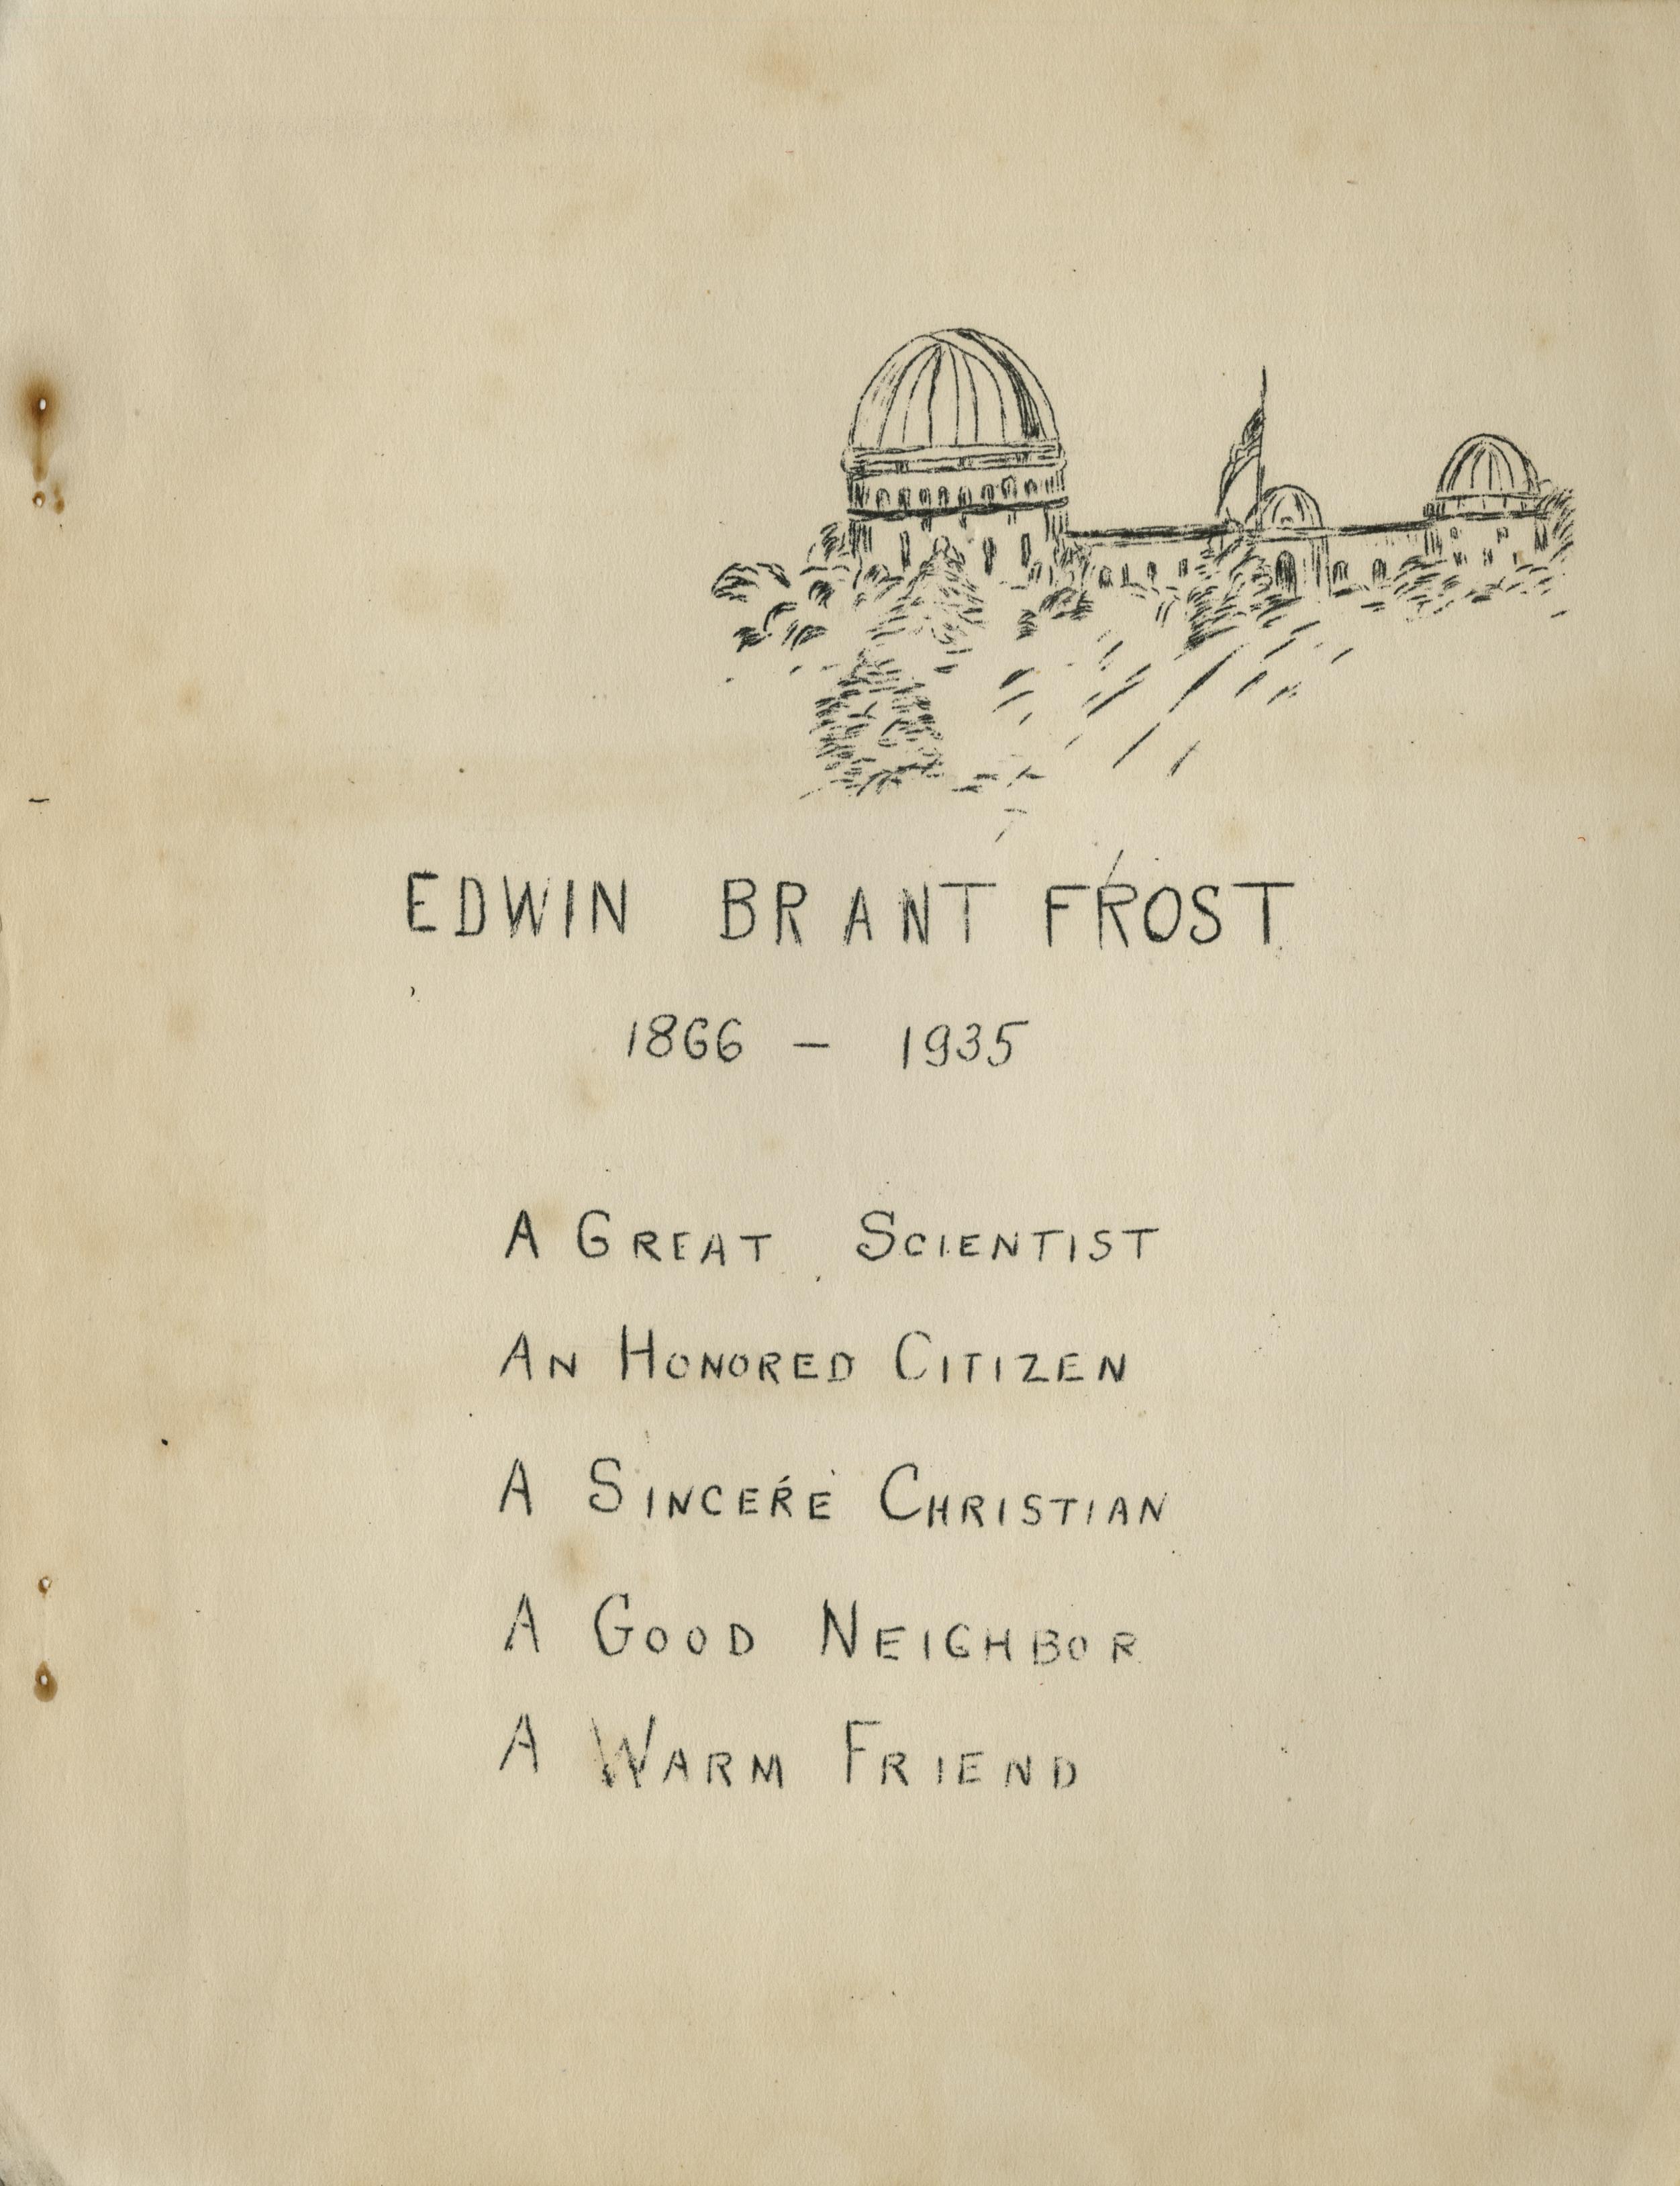 EDWIN BRANT FROST
1866 - 1935
A GREAT SCIENTIST
AN HONORED CITIZEN
A SINCERE CHRISTIAN
A GOOD NEIGHBOR
A WARM FRIEND